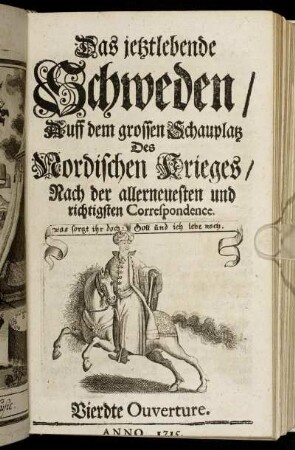 Das jetztlebende
Schweden/
Auff dem grossen Schauplatz
Des
Nordischen Krieges/
Nach der allerneuesten und
richtigsten Correspondence.
was sorgt ihr doch Gott und ich lebe noch.
Vierdte Ouverture.
ANNO 1715.